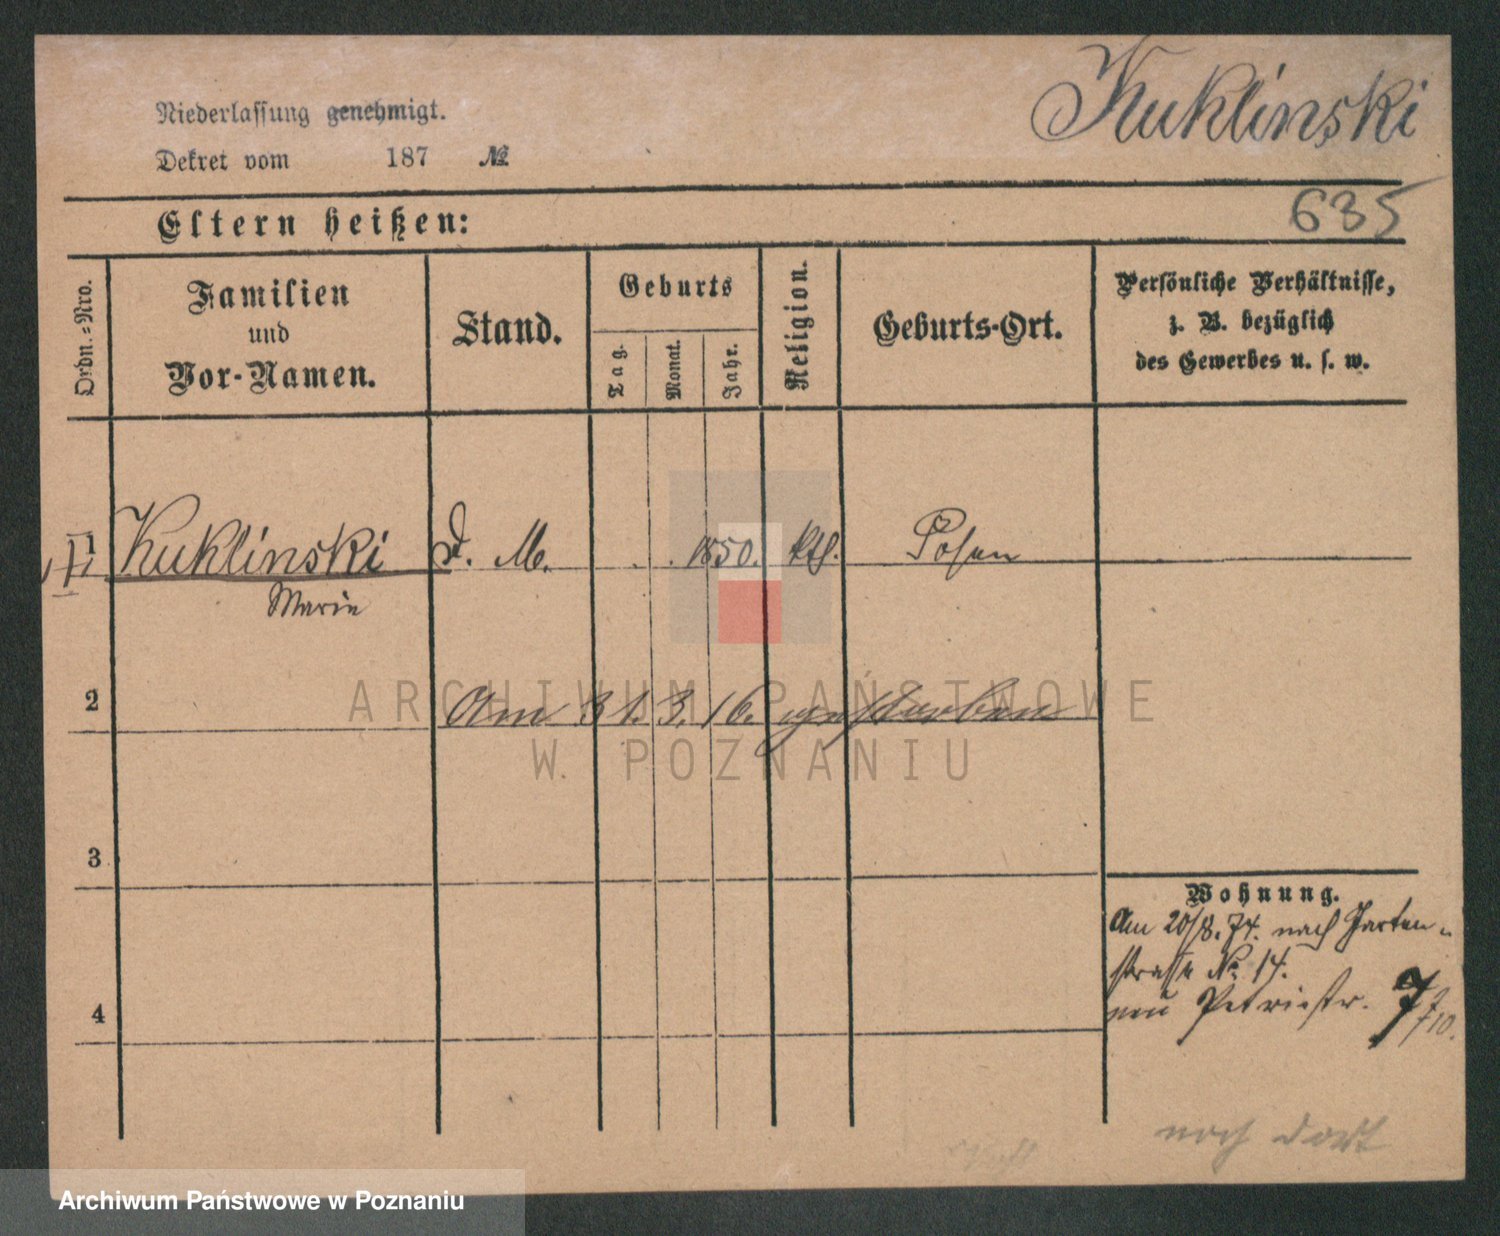 Kuklinski
Niederlassung genehmigt.
Dekret vom 187 №
635
Eltern heißen:
Ordn.=Nro.
Familien
und
Vor-Namen.
Stand.
Geburts
Tag.
Monat.
Jahr.
Religion.
Geburts-Ort.
Persönliche Verhältnisse,
z. B. bezüglich
des Gewerbes u. s. w.
1 Kuklinski d. M. . . 1850. kth. Posen
Marie
2 Am 31. 3. 16. gestorben
ARCHIWUM PAŃSTWOWE
W. POZNANIU
3
Wohnung.
Am 20/8. 74. nach Garten-
strasse No. 14.
neu Petristr. 7
4
noch dort
Archiwum Państwowe w Poznaniu